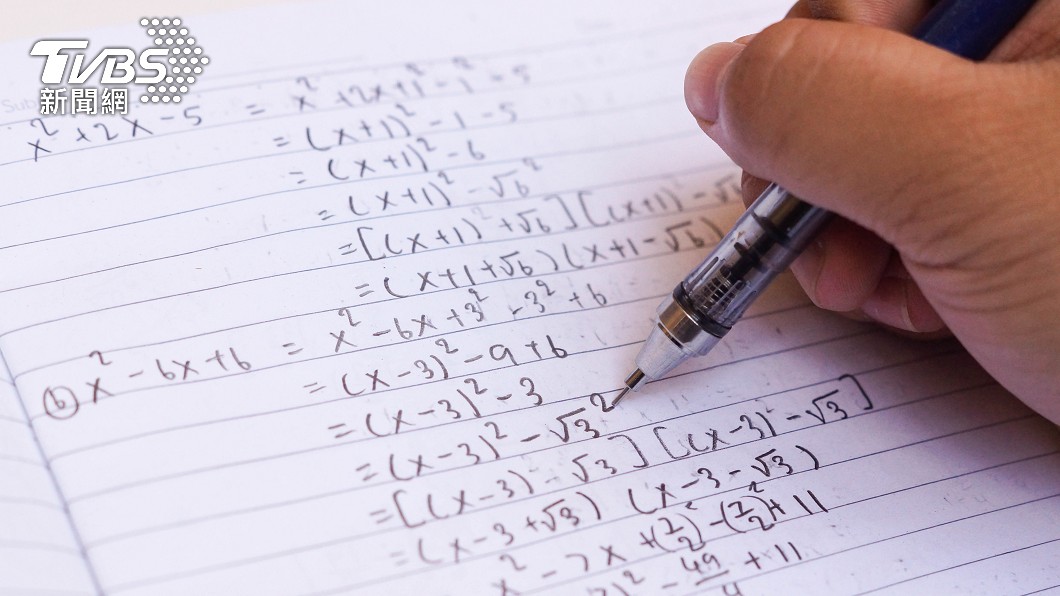 TVBS
新聞網
x² + 2x - 5 = x² + 2x + 1² - 1² - 5
= (x+1)² - 1 - 5
= (x+1)² - 6
= (x+1)² - √6²
= [(x+1)² + √6] [(x+1)² - √6
= (x+1+√6) (x+1-√6)
(b) x² - 6x + 6 = x² - 6x + 3² - 3² + 6
= (x-3)² - 9 + 6
= (x-3)² - 3
= (x-3)² - √3²
= [(x-3) - √3] [(x-3)² - √3]
= (x-3+√3) (x-3-√3)
x² - 7x + (7/2)² - (7/2)² + 11
)² - 49/4 + 11